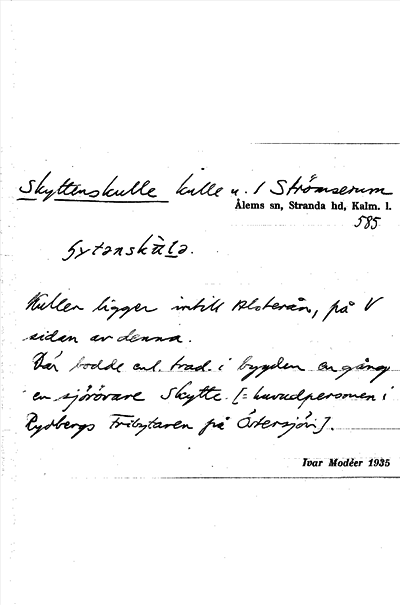 Skyttenskulle kulle u. / Strömserum
Ålems sn, Stranda hd, Kalm. l.
585
Kullen ligger intill Alsterån, på V
sidan av denna.
Där bodde enl. trad. i bygden en gång
en sjörövare Skytte. [= huvudpersonen i
Rydbergs Fribytaren på Östersjön].
Ivar Modéer 1935